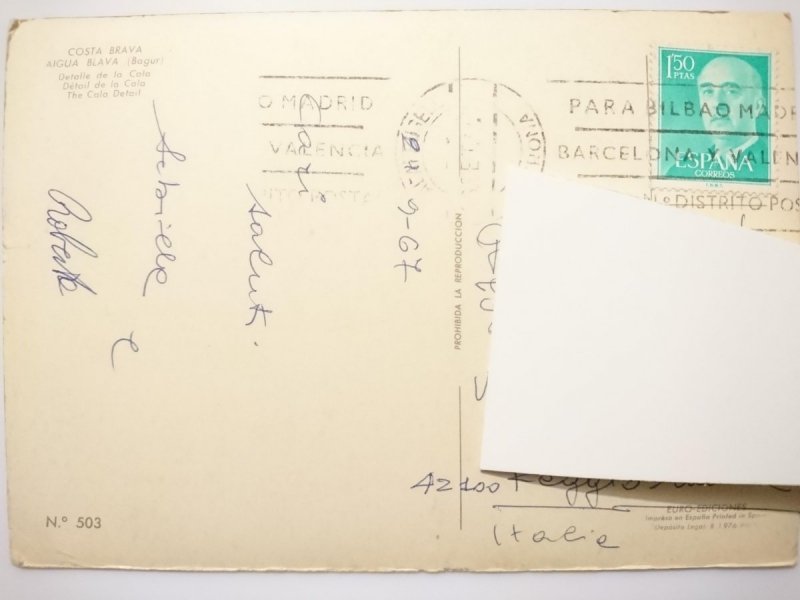 COSTA BRAVA
AIGUA BLAVA (Bagur)
Detalle de la Cala
Détail de la Cala
The Cala Detail
24-9-67
Cari
saluti
e
Roberto
N.° 503
PROHIBIDA LA REPRODUCCION
O MADRID
VALENCIA
PARA BILBAO MADR
BARCELONA Y VALEN
N.º DISTRITO POS
1'50
PTAS
ESPAÑA
CORREOS
42100 Reggio
Italia
EURO-EDICIONES
Impreso en España Printed in
Depósito Legal B. 1976